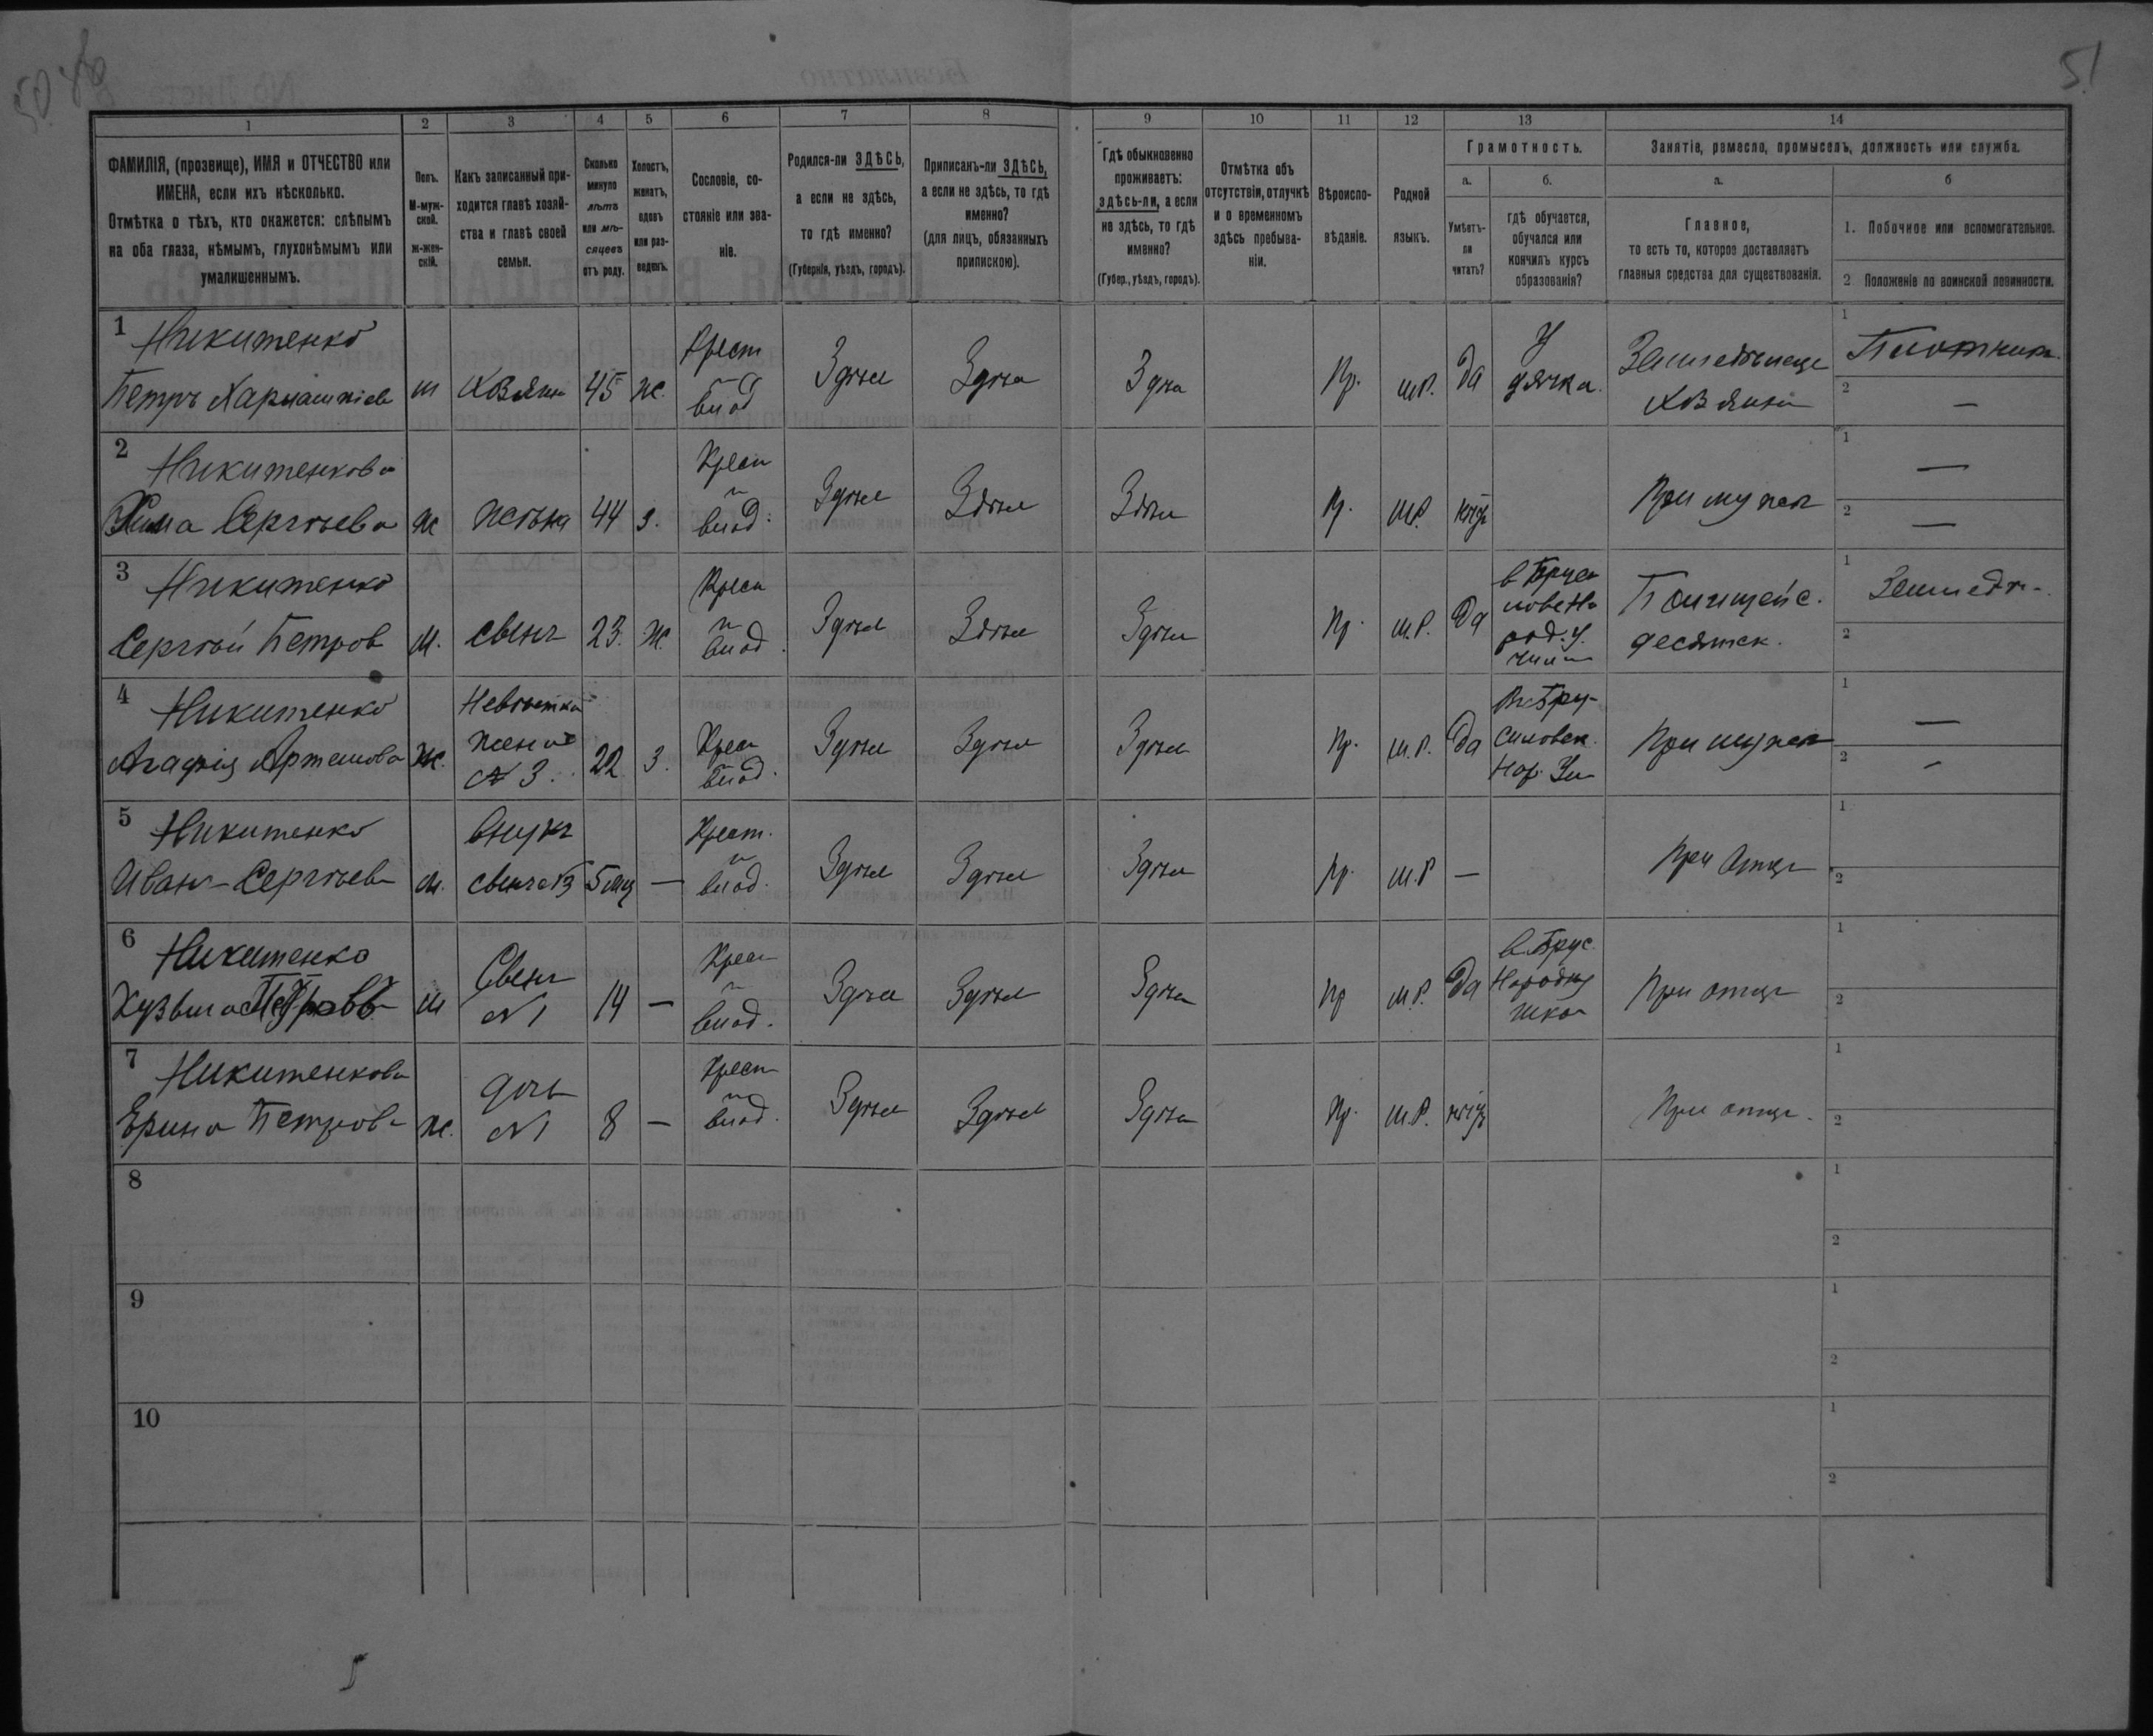 50
51
1 2 3 4 5 6 7 8 9 10 11 12 13 14
ФАМИЛІЯ, (прозвище), ИМЯ и ОТЧЕСТВО или
ИМЕНА, если ихъ нѣсколько.
Отмѣтка о тѣхъ, кто окажется: слѣпымъ
на оба глаза, нѣмымъ, глухонѣмымъ или
умалишеннымъ.
Полъ.
М-муж-
ской.
ж-жен-
скій.
Какъ записанный при-
ходится главѣ хозяй-
ства и главѣ своей
семьи.
Сколько
минуло
лѣтъ
или мѣ-
сяцевъ
отъ роду.
Холостъ,
женатъ,
вдовъ
или раз-
веденъ.
Сословіе, со-
стояніе или зва-
ніе.
Родился-ли ЗДѢСЬ,
а если не здѣсь,
то гдѣ именно?
(Губернія, уѣздъ, городъ).
Приписанъ-ли ЗДѢСЬ,
а если не здѣсь, то гдѣ
именно?
(для лицъ, обязанныхъ
припискою).
Гдѣ обыкновенно
проживаетъ:
здѣсь-ли, а если
не здѣсь, то гдѣ
именно?
(Губер., уѣздъ, городъ).
Отмѣтка объ
отсутствіи, отлучкѣ
и о временномъ
здѣсь пребыва-
ніи.
Вѣроиспо-
вѣданіе.
Родной
языкъ.
Грамотность.
а.
Умѣетъ-
ли
читать?
б.
гдѣ обучается,
обучался или
кончилъ курсъ
образованія?
Занятіе, ремесло, промыселъ, должность или служба.
а.
Главное,
то есть то, которое доставляетъ
главныя средства для существованія.
б
1. Побочное или вспомогательное.
2. Положеніе по воинской повинности.
1 Никитенко
Петръ
м Хозяин 45 ж. Крест
влад
Здѣсь Здѣсь Здѣсь Пр. м.р. да У
дячка.
Хозяинъ
1 Плотник.
2 —
2 Никитенкова
Сергѣева
ж жена 44 з. Крест
и
влад.
Здѣсь Здѣсь Здѣсь Пр. м.р. При мужѣ
1 —
2 —
3 Никитенко
Сергѣй Петров
м. сынъ 23. ж. Крест
и
влад.
Здѣсь Здѣсь Здѣсь Пр. м.р. да
Полицейс.
десятск.
1 Земледѣ.
2
4 Никитенко
Агафія Артемова
ж. Невѣстка
жена
№ 3. 22 з. Крест
влад.
Здѣсь Здѣсь Здѣсь Пр. м.р. да
При мужѣ
1 —
2 —
5 Никитенко
Иван Сергѣев
м. внукъ
сынъ №3 5 мц — Крест.
и
влад.
Здѣсь Здѣсь Здѣсь Пр. м.р —
При отцѣ
1
2
6 Никитенко
Кузьма Петровъ
м Сынъ
№1 14 — Крест
и
влад.
Здѣсь Здѣсь Здѣсь Пр м.р. да
в Брус.
Народну
шко
При отцѣ
1
2
7 Никитенкова
Ерина Петрова
ж. дочь
№1 8 — Крест
и
влад.
Здѣсь Здѣсь Здѣсь Пр. м.р.
При отцѣ.
1
2
8
1
2
9
1
2
10
1
2